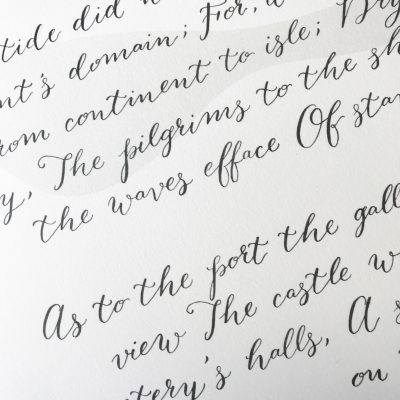 tide did
nt's domain; For,
rom continent to isle; Dry
y, The pilgrims to the sh
the waves efface Of sta
As to the port the gall
view The castle w
tery's halls, A s
on